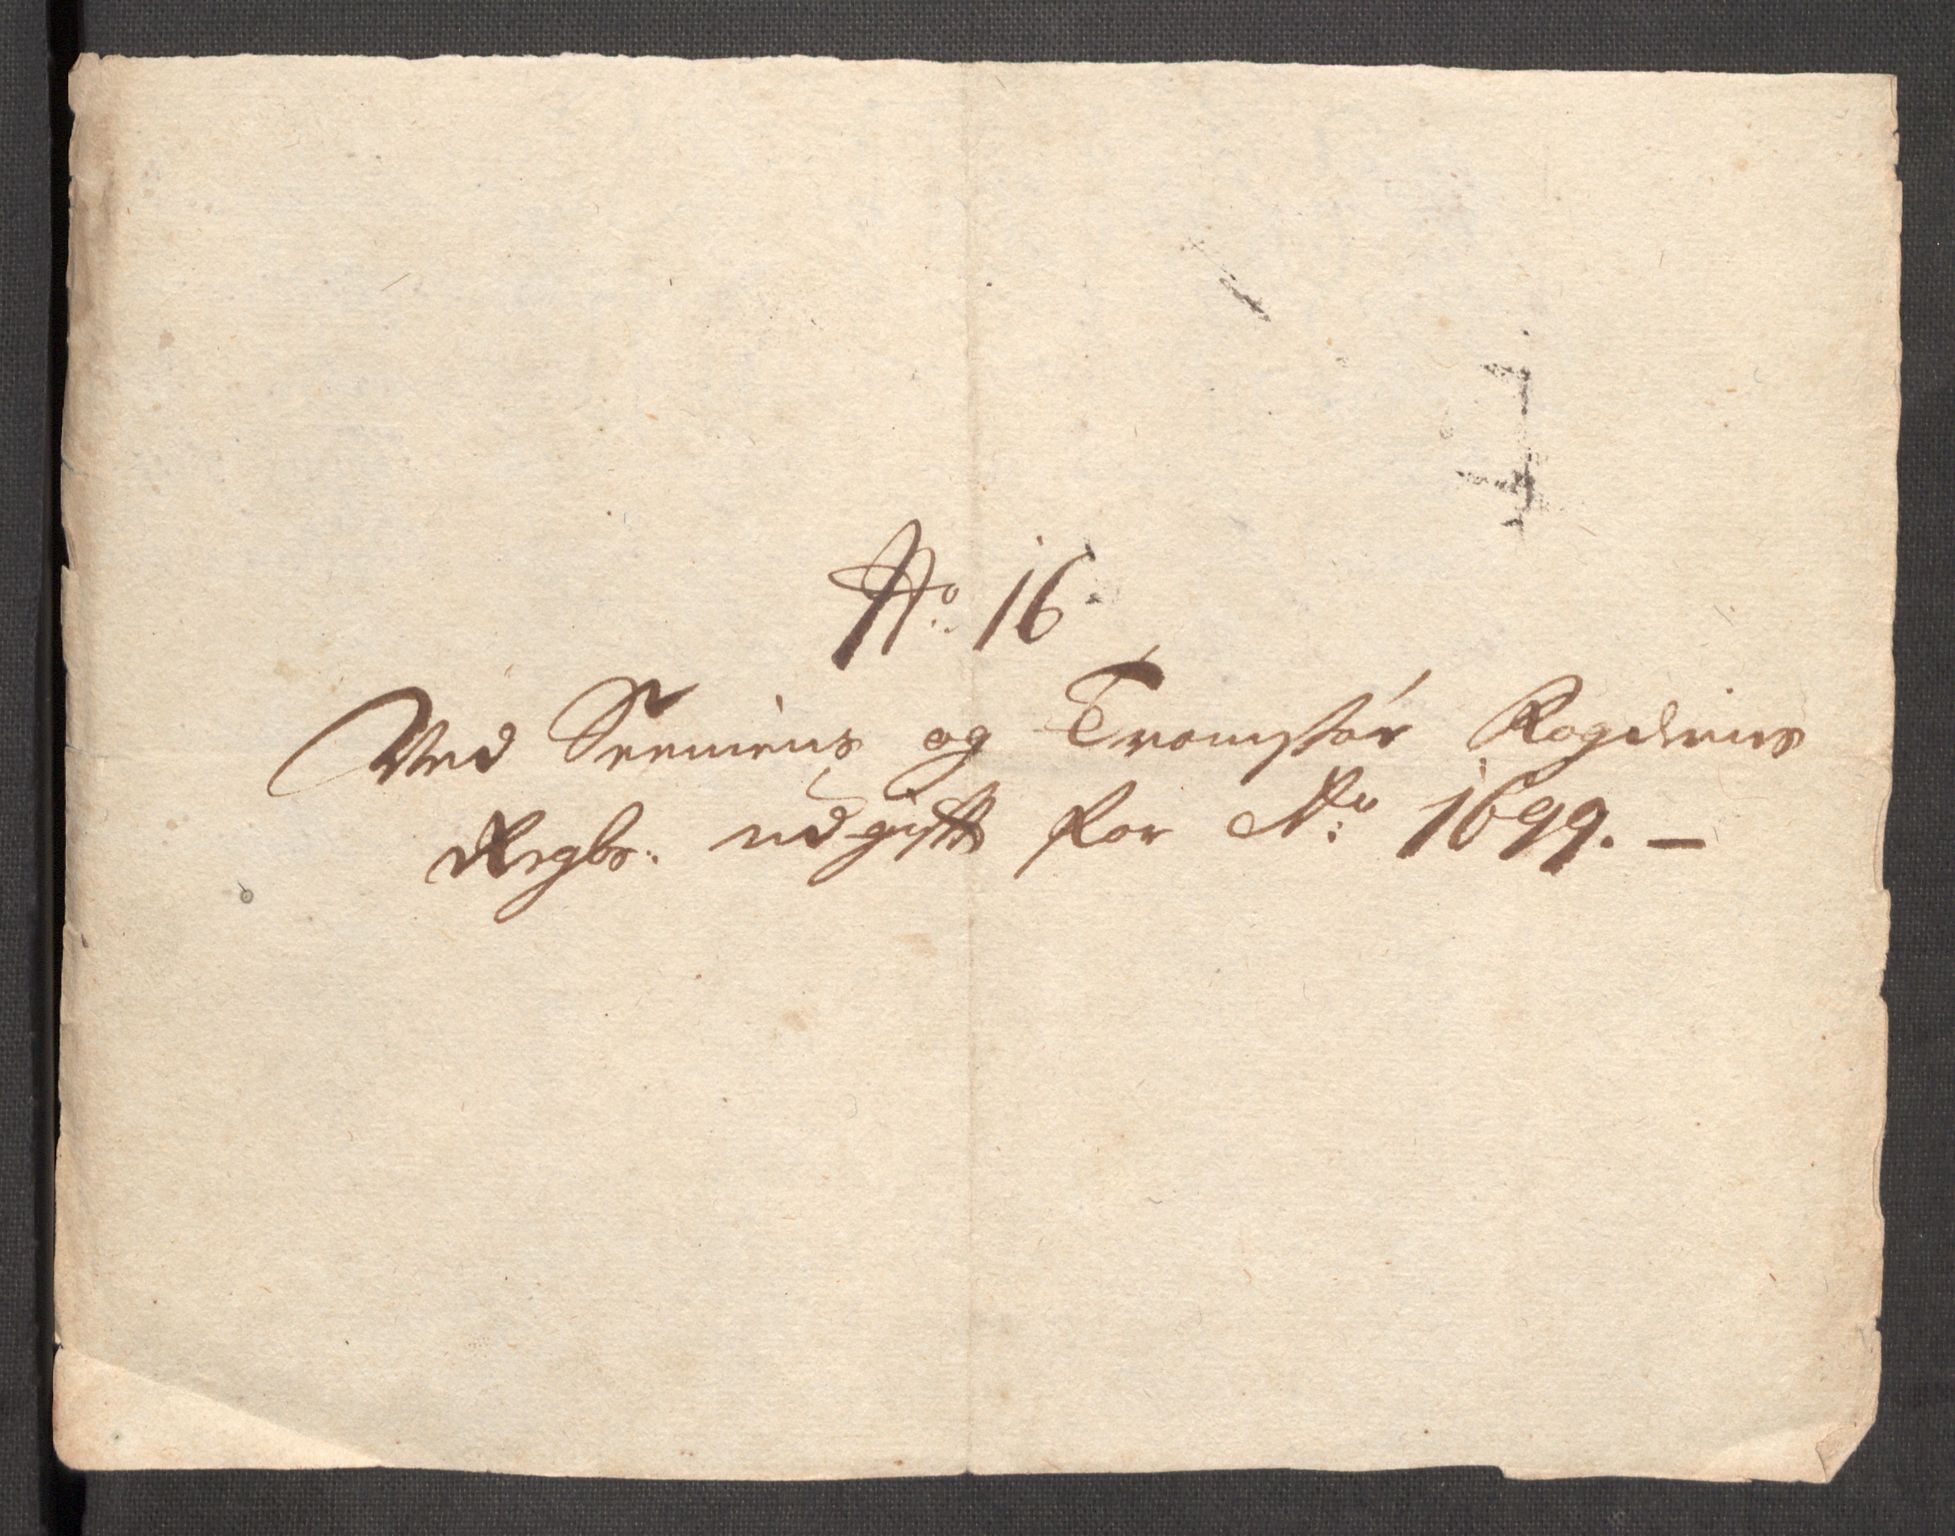 No. 16
Ved Senniens og Tromsøes Fogderies
Regbs. udgift for Ao. 1699. —